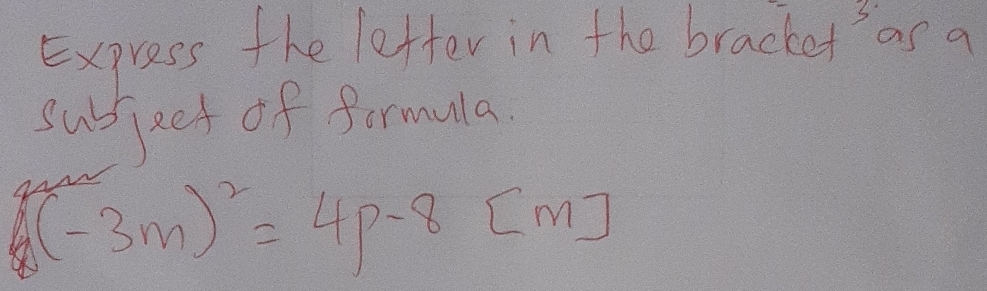 Express the letter in the bracket as a
subject of formula.
(-3m)² = 4p-8 [m]